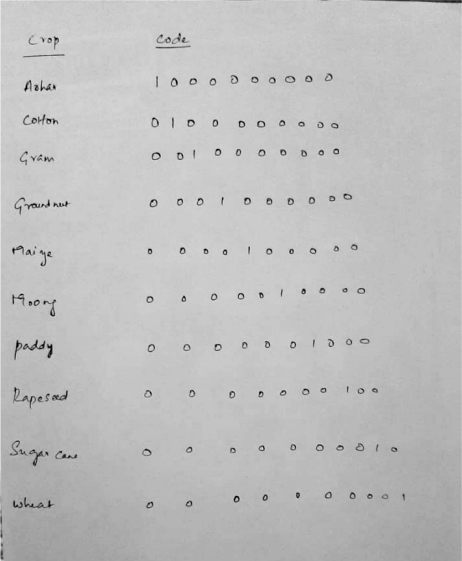 Crop Code
Arhar 1 0 0 0 0 0 0 0 0 0
Cotton 0 1 0 0 0 0 0 0 0 0
Gram 0 0 1 0 0 0 0 0 0 0
Groundnut 0 0 0 1 0 0 0 0 0 0
Maize 0 0 0 0 1 0 0 0 0 0
Moong 0 0 0 0 0 1 0 0 0 0
paddy 0 0 0 0 0 0 1 0 0 0
Rapeseed 0 0 0 0 0 0 0 1 0 0
Sugar cane 0 0 0 0 0 0 0 0 1 0
wheat 0 0 0 0 0 0 0 0 0 1